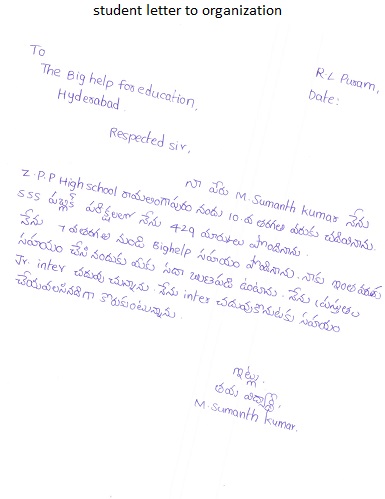 student letter to organization
To
The Big help for education,
Hyderabad
R.L Puram,
Date:
Respected sir,
నా పేరు M. Sumanth kumar నేను
Z.P.P High school రామలింగాపురం నందు 10వ తరగతి వరకు చదివినాను.
SSS పబ్లిక్ పరీక్షలలో నేను 429 మార్కులు పొందినాను.
నేను 7వ తరగతి నుండి Bighelp సహాయం పొందినాను. నాకు ఇంతవరకు
సహాయం చేసినందుకు మీకు సదా ఋణపడి ఉంటాను. నేను ప్రస్తుతం
Jr. inter చదువుచున్నాను. నేను inter చదువుకొనుటకు సహాయం
చేయవలసినదిగా కోరుకుంటున్నాను.
ఇట్లు,
తమ విద్యార్థి,
M. Sumanth kumar.